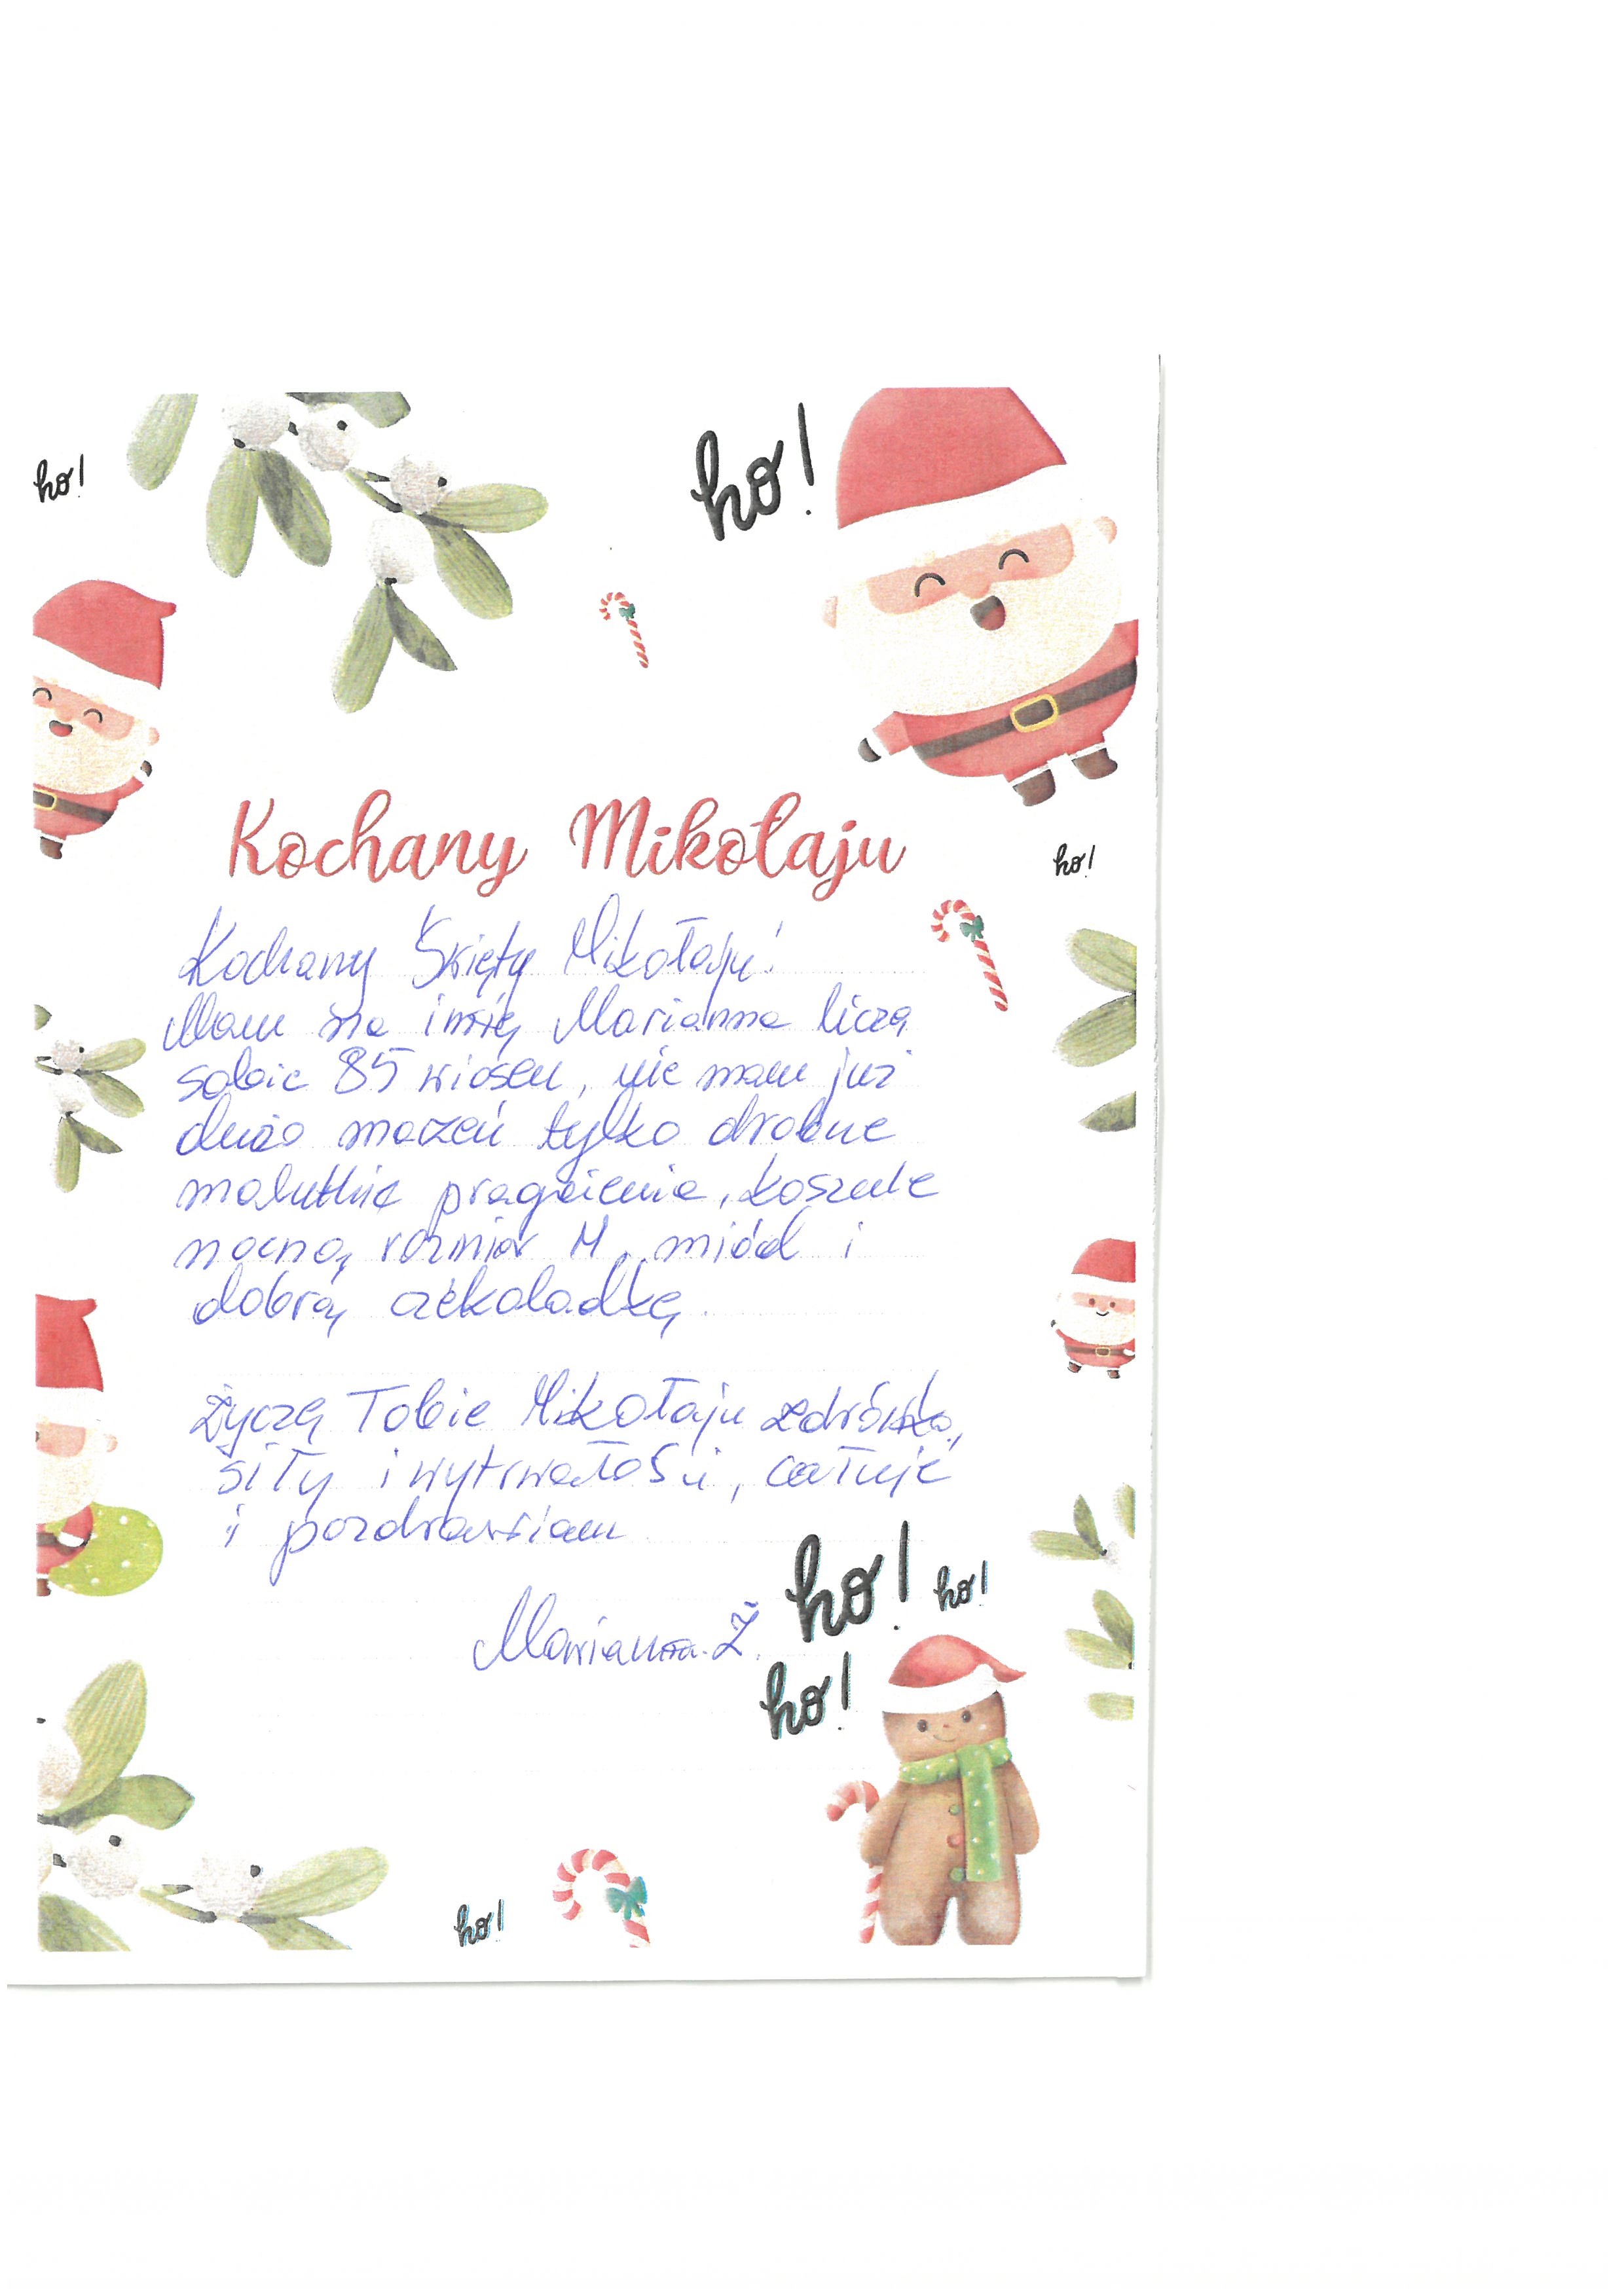 ho!
ho!
Kochany Mikołaju
ho!
Kochany Święty Mikołaju!
Mam na imię Marianna liczą
sobie 85 wiosen, nie mam już
dużo marzeń tylko drobne
malutkie pragnienia, koszule
nocną rozmiar M, miód i
dobrą czekoladkę.
Życzę Tobie Mikołaju zdrówka,
siły i wytrwałości, całuję
i pozdrawiam
Marianna Ż.
ho!
ho!
ho!
ho!